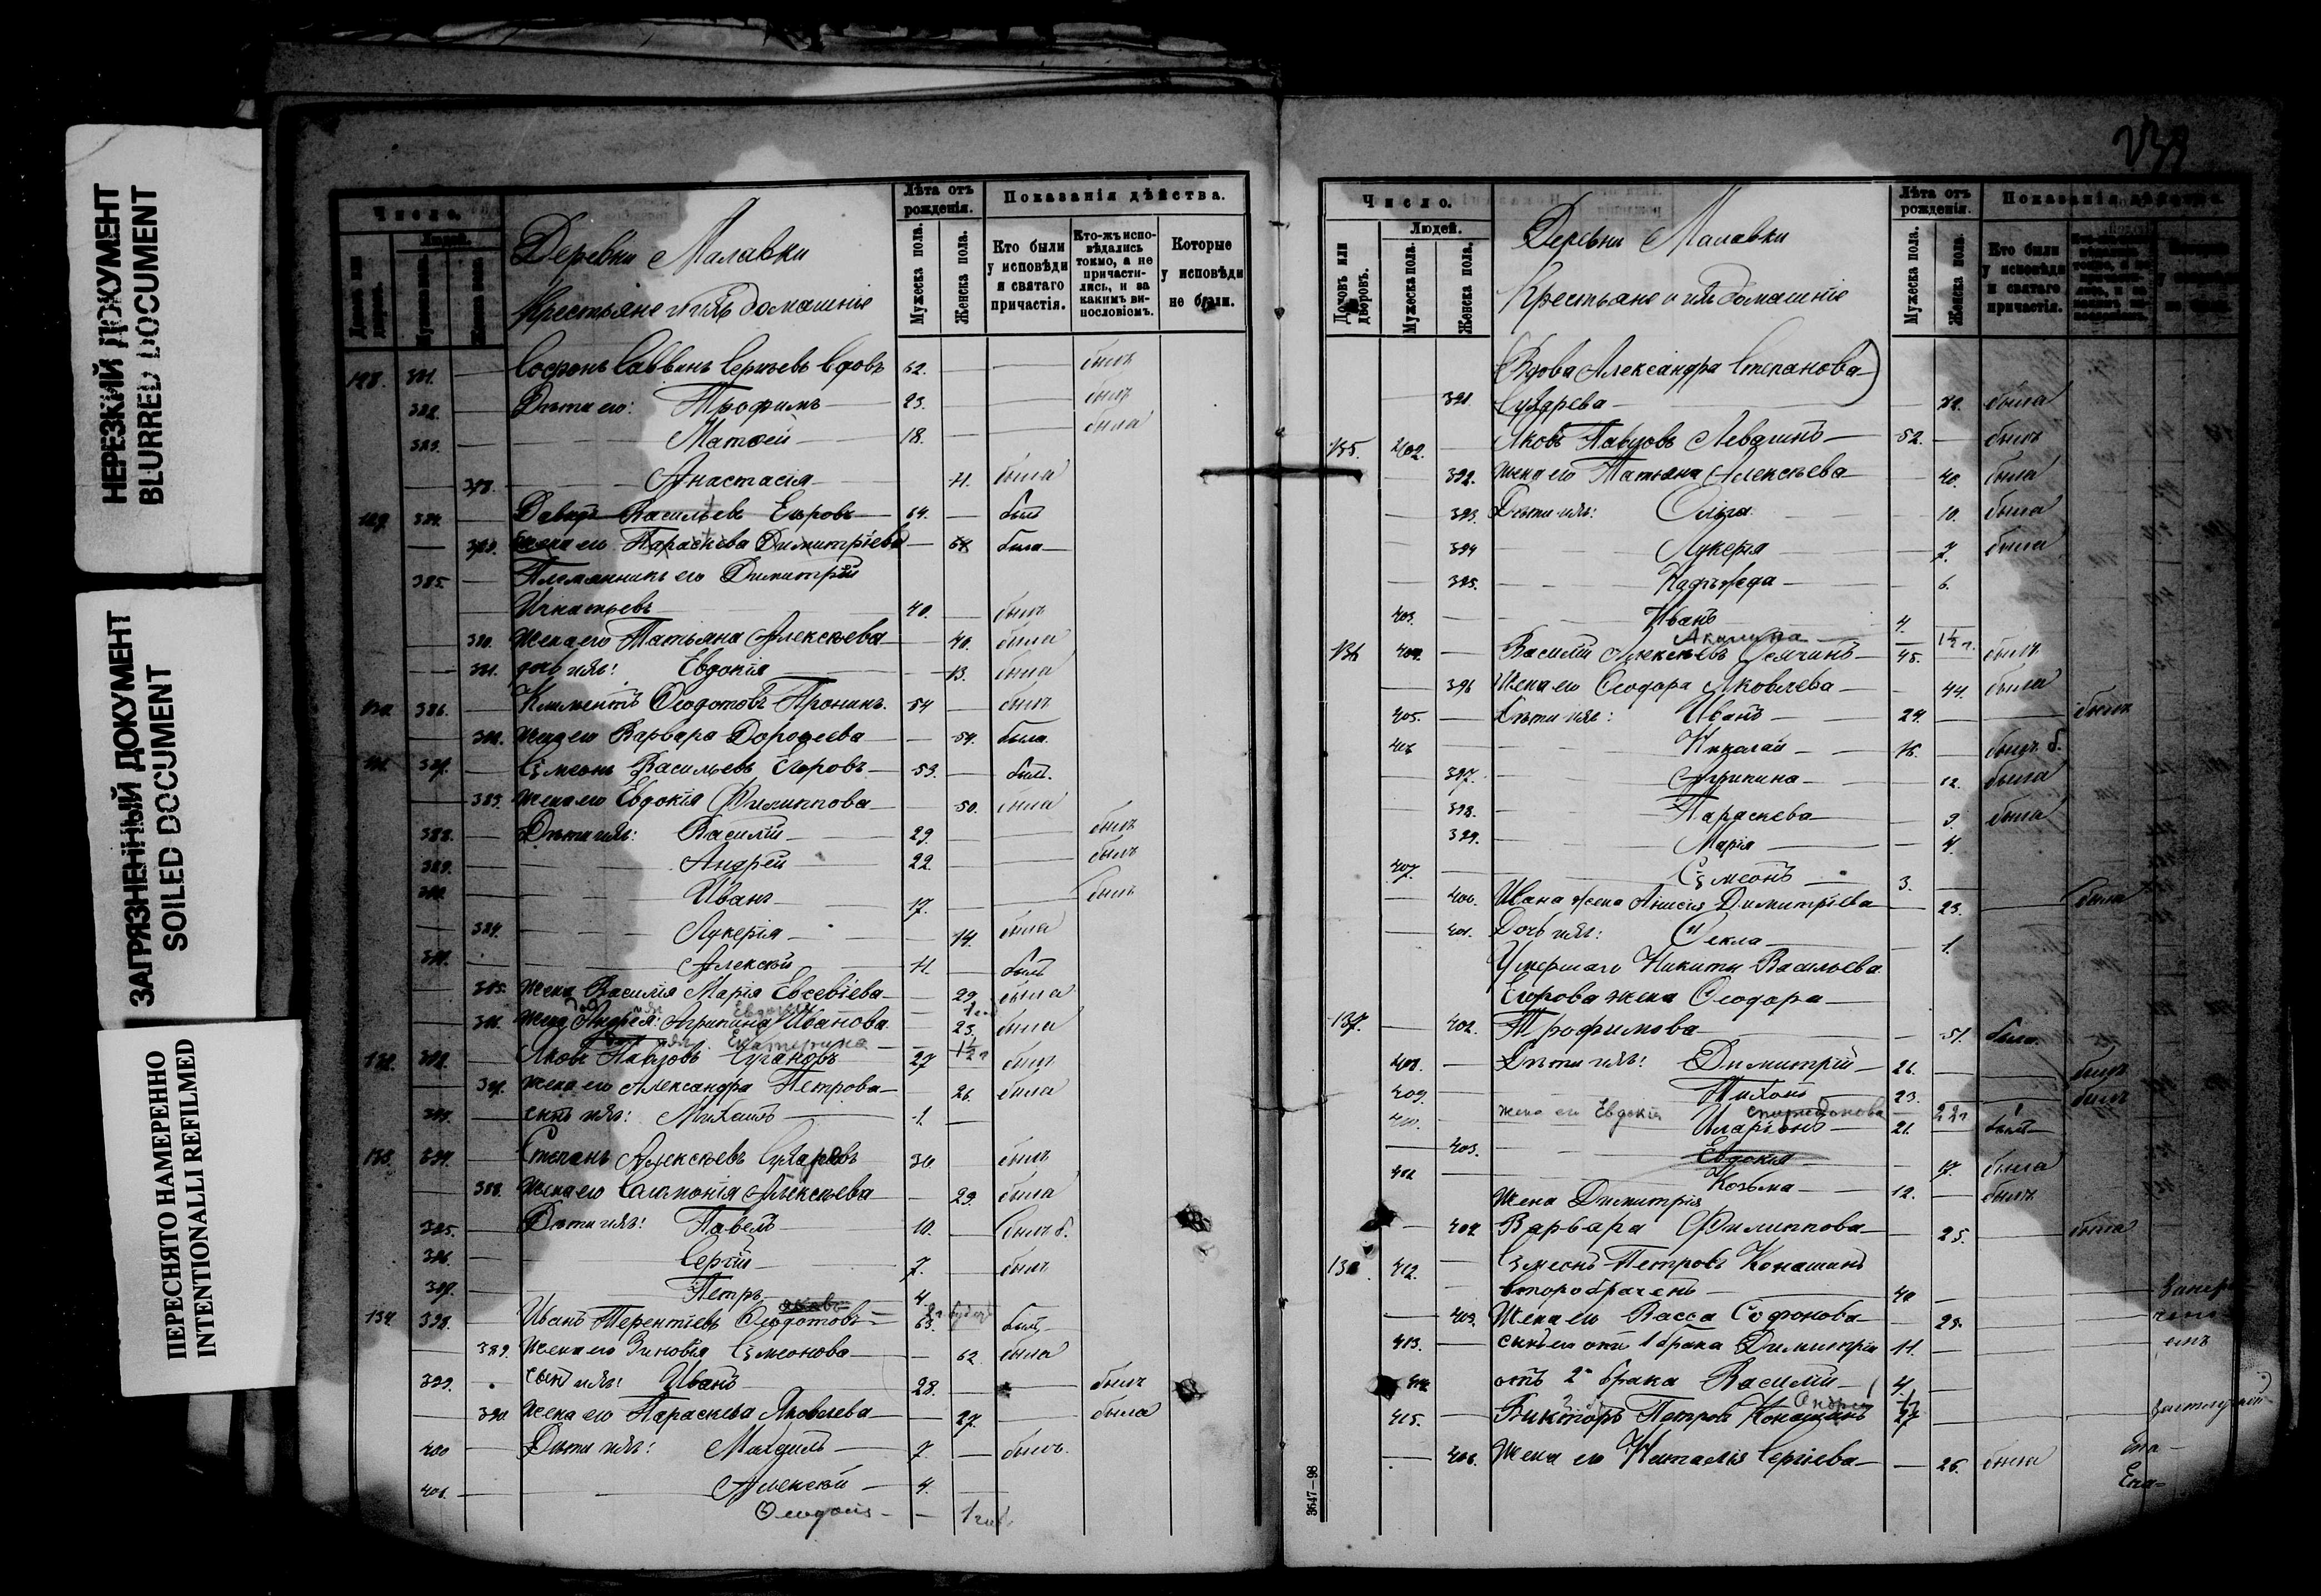 НЕРЕЗКИЙ ДОКУМЕНТ
BLURRED DOCUMENT
ЗАГРЯЗНЕННЫЙ ДОКУМЕНТ
SOILED DOCUMENT
ПЕРЕСНЯТО НАМЕРЕННО
INTENTIONALLI REFILMED
Число.
Людей.
Деревни Малавки
Крестьяне и ихъ домашніе
Лѣта отъ рожденія.
Мужеска пола.
Женска пола.
Показанія дѣйства.
Кто были у исповѣди и святаго причастія.
Кто-жъ исповѣдались токмо, а не причастились, и за какимъ винословіемъ.
Которые у исповѣди не были.
128. 381. Софронъ Саввинъ Сергѣевъ вдовъ 62. былъ
382. Дѣти его: Трофимъ 23. былъ
383. Матѳей 18. была
378. Анастасія 11. была
129. 384. Давидъ Васильевъ Егоровъ 64. был
379. Жена его Параскева Димитріева 64 была
385. Племянникъ его Димитрій
Игнатьевъ 40. былъ
380. Жена его Татьяна Алексѣева 40. была
381. дочь ихъ: Евдокія 13. была
130. 386. Климентъ Ѳеодотовъ Пронинъ. 54 былъ
382. Жена его Варвара Дороѳеева 54. была
131. 387. Сѵмеонъ Васильевъ Егоровъ 53. был.
383. Жена его Евдокія Филиппова 50. была
388. Дѣти ихъ: Василій 29. былъ
389. Андрей 22. былъ
390. Иванъ 17. былъ
384. Лукерія 14. была
391. Алексѣй 11. был
385. Жена Василія Марія Евсевіева 29. была
386. Жена Андрея: Агрипина Иванова 23. была
Екатерина 1½ г
132. 392. Яковъ Павловъ 27 был
387. Жена его Александра Петрова 26. была
393. сынъ ихъ: Михаилъ 1.
133. 394. Степанъ Алексѣевъ Сухаревъ 30. былъ
388. Жена его Саломонія Алексѣева 29. была
395. Дѣти ихъ: Павелъ 10. былъ б.
396. Сергій 7. былъ
397. Петръ 4
134 398. Иванъ Терентіевъ Ѳеодотовъ 63. был
389. Жена его Зиновія Сѵмеонова 62. была
399. сынъ ихъ: Иванъ 28. былъ
390. Жена его Параскева Яковлева 27. была
400 Дѣти ихъ: 7. былъ.
401. Алексѣй 4.
Число.
Домовъ или дворовъ.
Людей.
Мужеска пола.
Женска пола.
Деревни Малавки
Крестьяне и ихъ домашніе
Лѣта отъ рожденія.
Мужеска пола.
Женска пола.
Показанія дѣйства.
Кто были у исповѣди и святаго причастія.
(Вдова Александра Степанова)
391. Сухарева была
135. 402. Яковъ Павловъ 52. былъ
392. Жена его Татьяна Алексѣева 40. была
393. Дѣти ихъ: Ольга 10. была
394 Лукерія 7. была
395. Надѣжда 6.
403. Иванъ 4.
Акилина 1½ г.
136 404. Василій Алексѣевъ 45. былъ
396 Жена его Ѳеодора Яковлева 44. была
405. Дѣти ихъ: Иванъ 24. былъ
406 Николай 16. былъ б.
397. Агрипина 12. была
398. Параскева 9. была
399. Марія 4.
407. Сѵмеонъ 3.
400. Ивана жена Анисія Димитріева 23. была
401. Дочь ихъ: Ѳекла 1.
Умершаго Никиты Васильева
Егорова жена Ѳеодора
137. 402. Трофимова 51. была.
408. Дѣти ихъ: Димитрій 26. былъ
409. Тихонъ 23. былъ
жена его Евдокія Спиридонова 22 г
410. Иларіонъ 21. был
403. Евдокія 17. была
411 Козьма 12. былъ
Жена Димитрія
404 Варвара Филиппова 25. была
138 412. Сѵмеонъ Петровъ Конашинъ
второбраченъ 40
405. Жена его Васса Софонова 29.
413. сынъ его отъ 1 брака Димитрій 11.
414 отъ 2го брака Василій 4.
Андрей
415. Викторъ Петровъ Конашинъ 27
406. Жена его Наталія Сергіева 26. была
3647—98